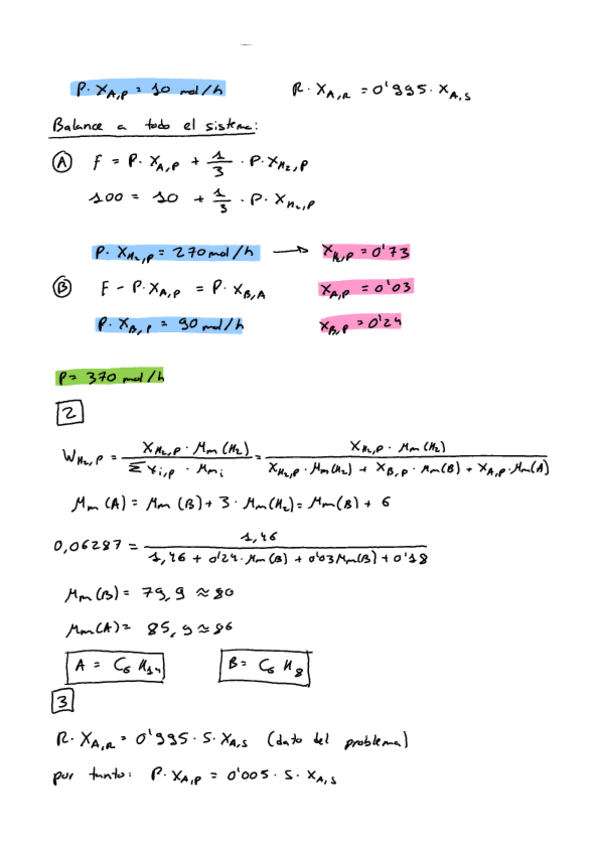 P · X_A,P = 10 mol/h    R · X_A,R = 0'995 · X_A,S
Balance a todo el sistema:
Ⓐ F = P · X_A,P + 1/3 · P · X_H₂,P
100 = 10 + 1/3 · P · X_H₂,P
P · X_H₂,P = 270 mol/h → X_H₂,P = 0'73
Ⓑ F - P · X_A,P = P · X_B,A    X_A,P = 0'03
P · X_B,P = 90 mol/h    X_B,P = 0'24
P = 370 mol/h
2
W_H₂,P = X_H₂,P · Mm(H₂) / Σ X_i,P · Mm_i = X_H₂,P · Mm(H₂) / X_H₂,P · Mm(H₂) + X_B,P · Mm(B) + X_A,P · Mm(A)
Mm(A) = Mm(B) + 3 · Mm(H₂) = Mm(B) + 6
0,06287 = 1,46 / 1,46 + 0'24 · Mm(B) + 0'03 Mm(B) + 0'18
Mm(B) = 79,9 ≈ 80
Mm(A) = 85,9 ≈ 86
A = C₆ H₁₄    B = C₆ H₈
3
R · X_A,R = 0'995 · S · X_A,S (dato del problema)
por tanto: P · X_A,P = 0'005 · S · X_A,S